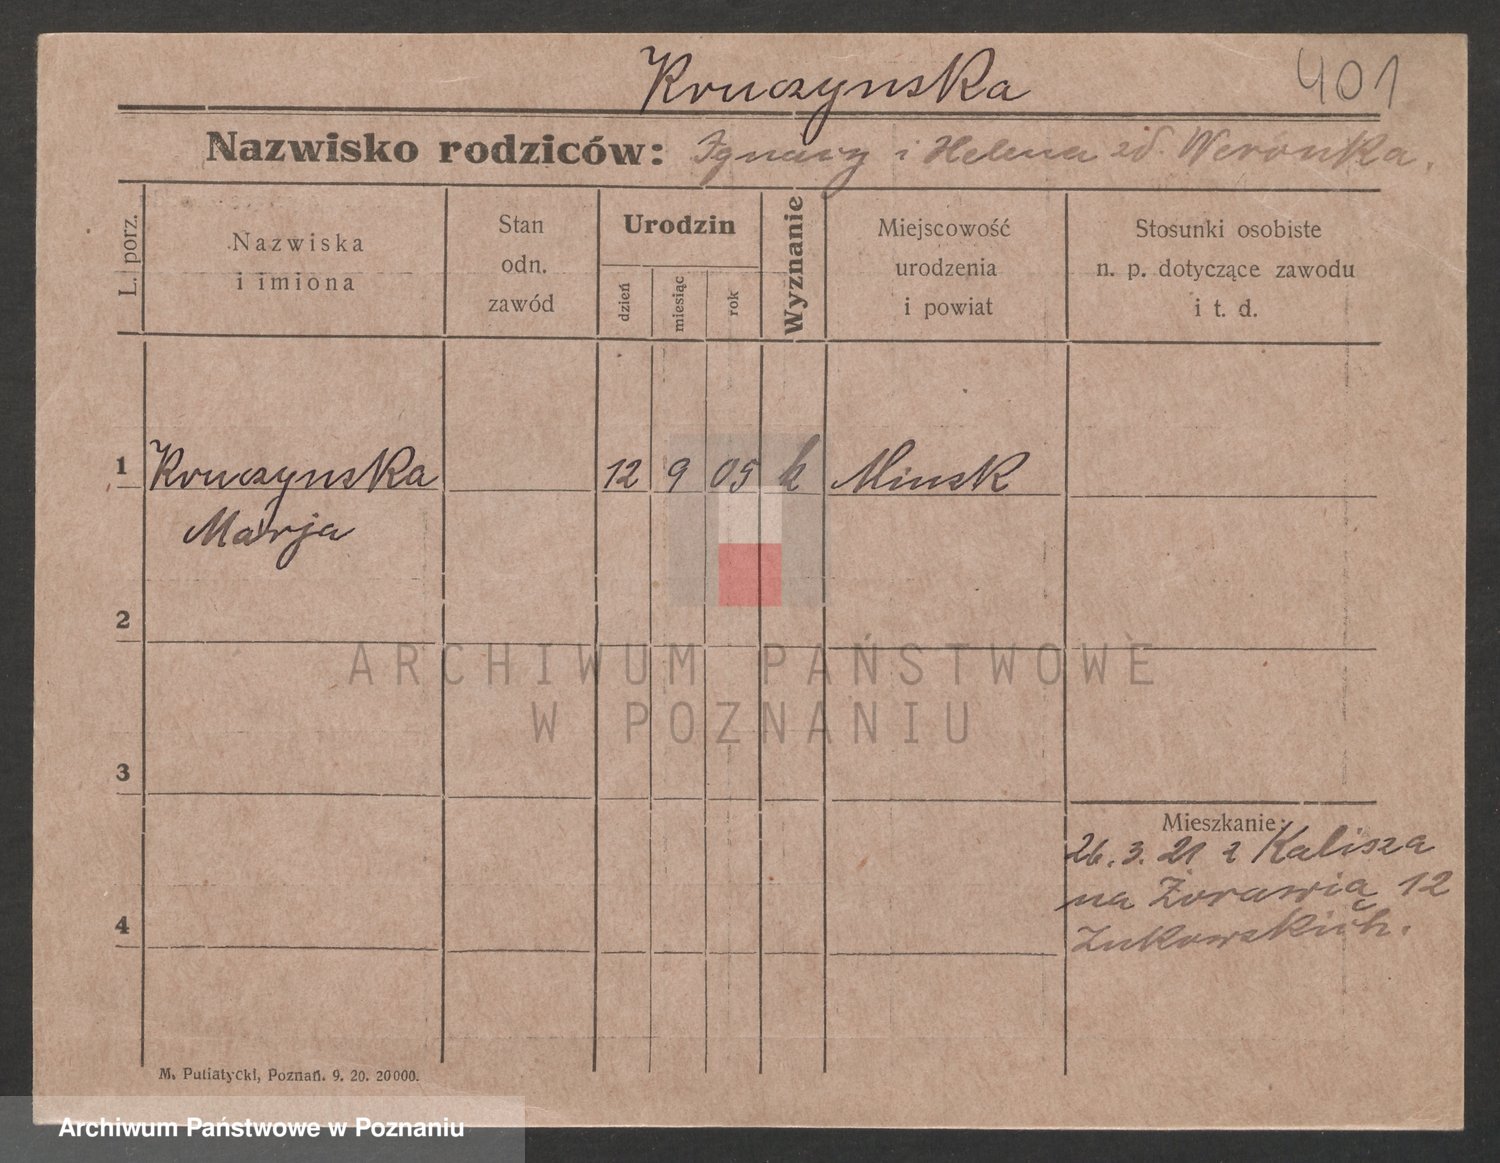 Kruczynska
401
Nazwisko rodziców: Ignacy i Helena zd. Weronka.
L. porz.
Nazwiska
i imiona
Stan
odn.
zawód
Urodzin
dzień
miesiąc
rok
Wyznanie
Miejscowość
urodzenia
i powiat
Stosunki osobiste
n. p. dotyczące zawodu
i t. d.
1 Kruczynska 12 9 05 k Minsk
Marja
2
3
4
ARCHIWUM PAŃSTWOWE
W POZNANIU
Mieszkanie:
26.3.21 z Kalisza
na Żorawią 12
Żukowskich.
M. Putiatycki, Poznań. 9. 20. 20000.
Archiwum Państwowe w Poznaniu